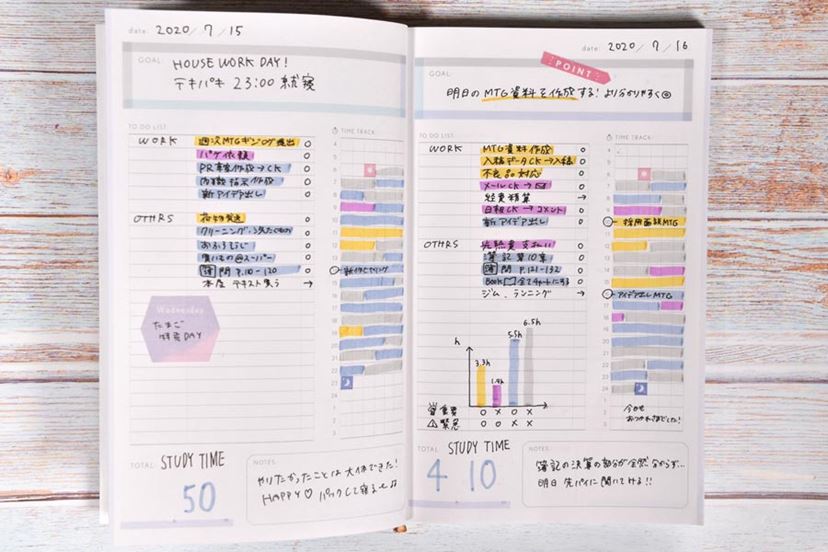 date: 2020/7/15
GOAL:
HOUSE WORK DAY!
テキパキ 23:00 就寝
TO DO LIST
TIME TRACK
WORK
週次MTGギジログ提出
パケ依頼
PR事案作成→CK
内職指示作成
新アイデア出し
OTHRS
荷物発送
クリーニング
おふろそうじ
買いもの@スーパー
簿 問 P.110-120
本屋 テキスト買う →
Wednesday
たまご
特売DAY
4
5
6
7
8
9
10
11
12
13
14
15
16
17
18
19
20
21
22
23
24
1
2
3
TOTAL:
STUDY TIME
50
NOTES:
やりたかったことは大体できた!
HAPPY♡ パックして寝るせ♪
date: 2020/7/16
POINT
GOAL:
明日のMTG資料を作成する! より分かりやすく◎
TO DO LIST
TIME TRACK
WORK
MTG資料作成
入稿データCK→入稿
不良品対応
メールCK→
経費精算 →
日報CK→コメント
新アイデア出し
OTHRS
簿記第10章
簿 問 P.121-132
ジム、ランニング →
採用面談MTG
アイデア出しMTG
今日も
おつかれさまでした!
h
3.3h
1.4h
5.5h
6.5h
重要 ○ × ○ ×
緊急 ○ ○ × ×
TOTAL:
STUDY TIME
4 10
NOTES:
簿記の決算の部分が全然分からず…
明日 先パイに聞いてみる!!